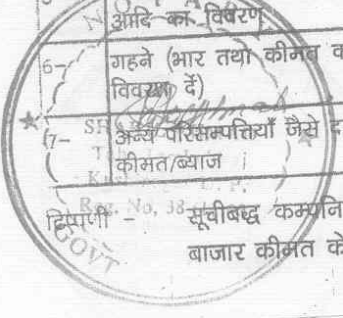 आदि का विवरण
6- गहने (भार तथा कीमत
विवरण दें)
7- अन्य परिसम्पत्तियाँ जैसे
कीमत/ब्याज
टिप्पणी - सूचीबद्ध कम्पनि
बाजार कीमत के
Reg. No. 38
GOVT